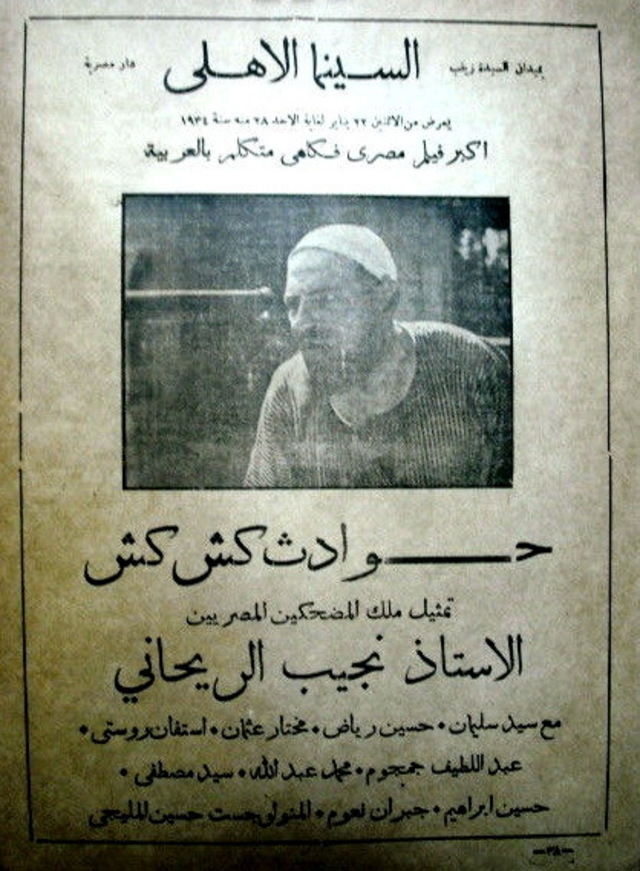 بميدان السيدة زينب السينما الاهلى دار مصرية
يعرض من الاثنين ٢٢ يناير لغاية الاحد ٢٨ منه سنة ١٩٣٤
اكبر فيلم مصرى فكاهى متكلم بالعربية
حوادث كش كش
تمثيل ملك المضحكين المصريين
الاستاذ نجيب الريحاني
مع سيد سليمان • حسين رياض • مختار عثمان • استفان روستى •
عبد اللطيف جمجوم • محمد عبد الله • سيد مصطفى •
حسين ابراهيم • جبران نعوم • المنولوجست حسين المليجى
—٣٨—